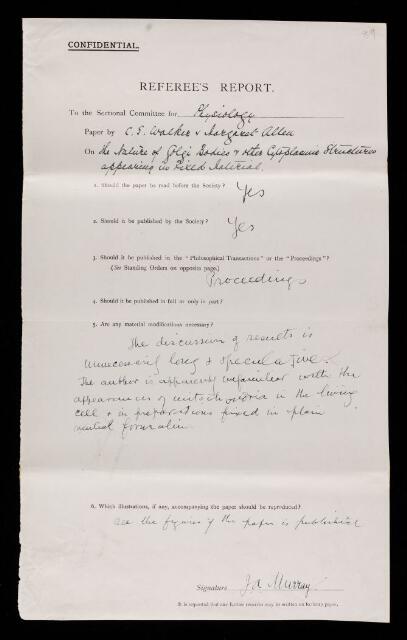 39
CONFIDENTIAL.
REFEREE'S REPORT.
To the Sectional Committee for Physiology
Paper by C. E. Walker & Margaret Allen
On the Nature of Golgi Bodies & other Cytoplasmic Structures
appearing in Fixed Material.
1. Should the paper be read before the Society? Yes
2. Should it be published by the Society? Yes
3. Should it be published in the "Philosophical Transactions" or the "Proceedings"?
(See Standing Orders on opposite page.)
Proceedings
4. Should it be published in full or only in part?
5. Are any material modifications necessary?
The discussion of results is
unnecessarily long & speculative.
The author is apparently unfamiliar with the
appearances of mitochondria in the living
cell & in preparations fixed in plain
neutral formalin.
6. Which illustrations, if any, accompanying the paper should be reproduced?
All the figures if the paper is published
Signature J A Murray
It is requested that any further remarks may be written on